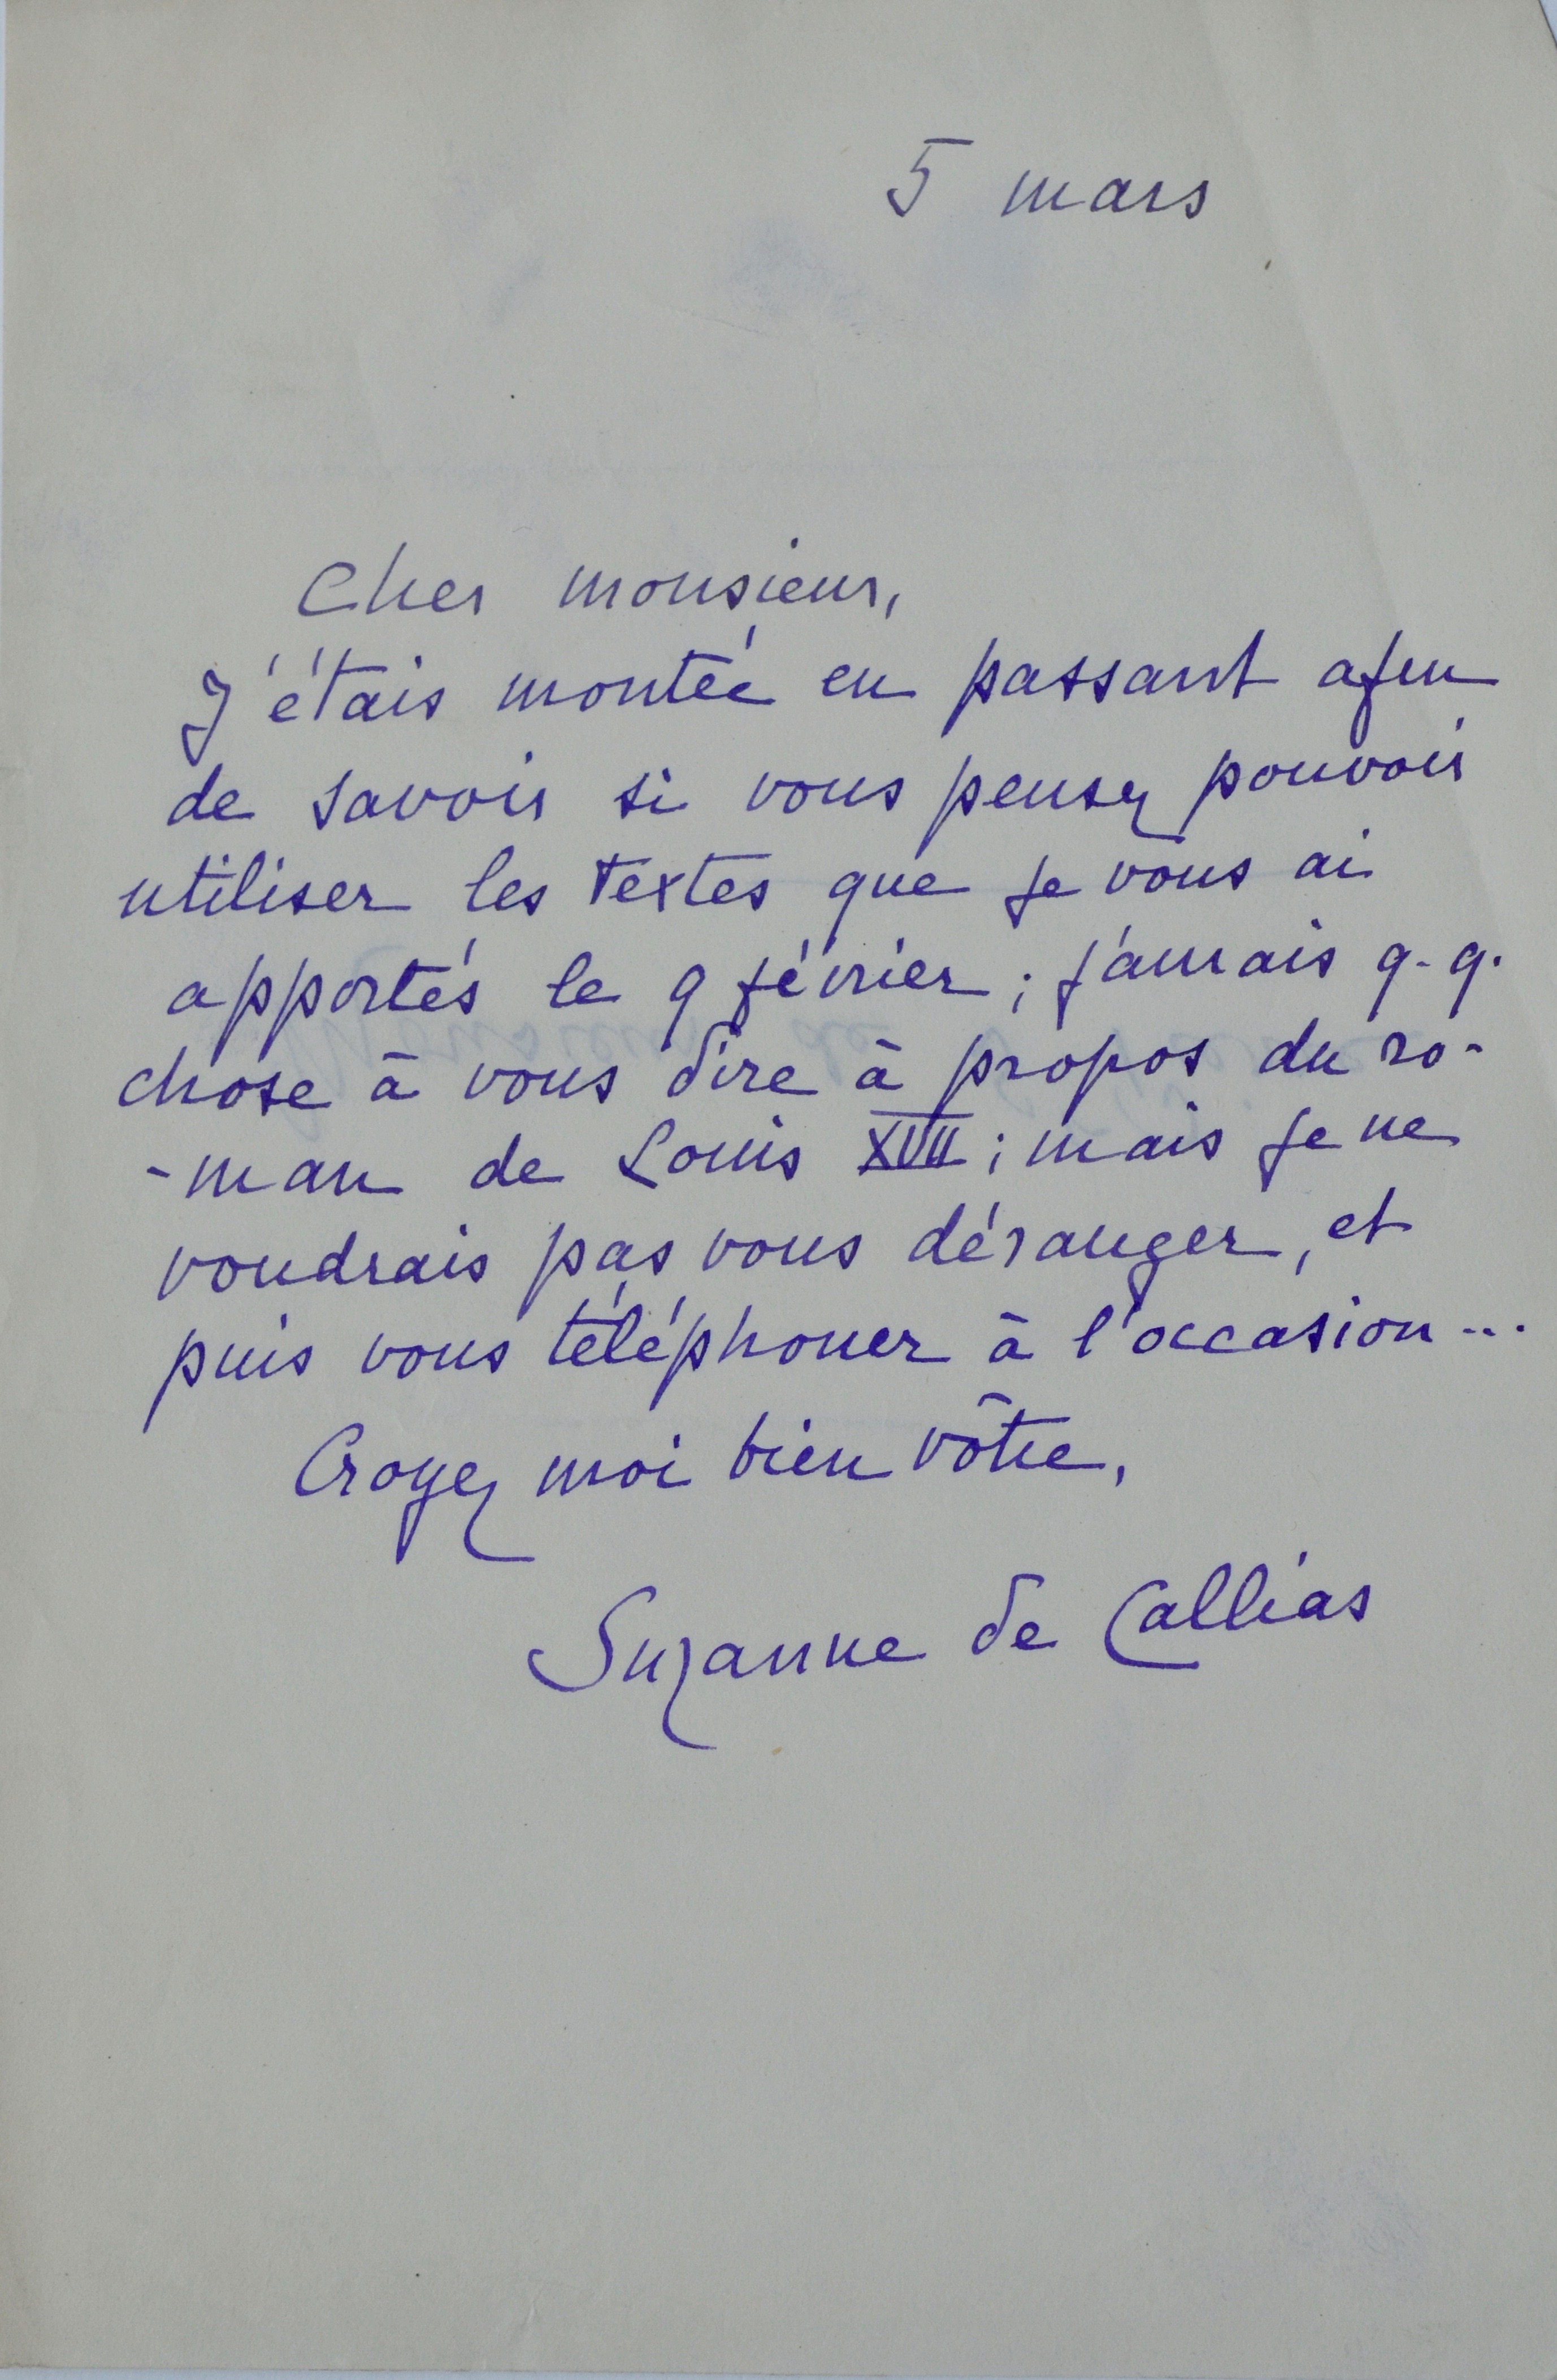 5 mars
Cher monsieur,
J'étais montée en passant afin
de savoir si vous pensez pouvoir
utiliser les textes que je vous ai
apportés le 9 février ; j'aurais q.q.
chose à vous dire à propos du ro-
-man de Louis XVII ; mais je ne
voudrais pas vous déranger, et
puis vous téléphoner à l'occasion...
Croyez moi bien vôtre,
Suzanne de Callias